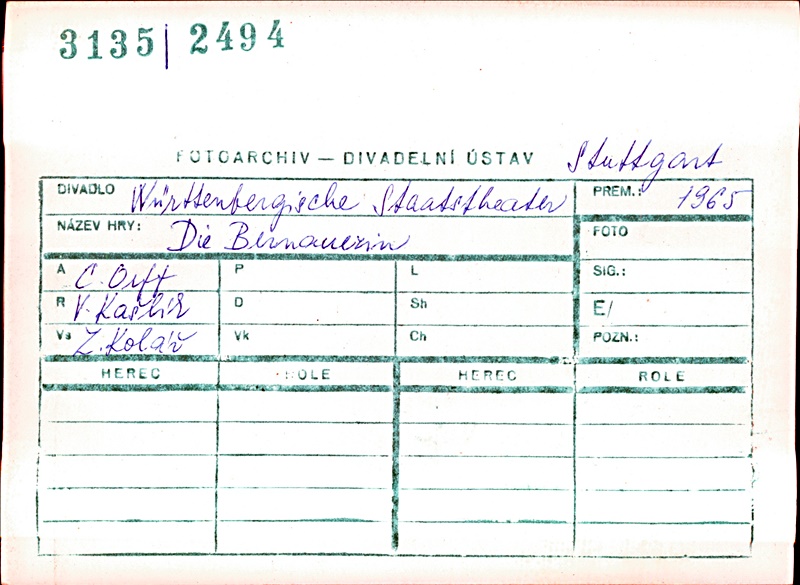 3135 | 2494
FOTOARCHIV — DIVADELNÍ ÚSTAV Stuttgart
DIVADLO Württenbergische Staatstheater PREM.: 1965
NÁZEV HRY: Die Bernauerin FOTO
A C. Orff P L SIG.:
R V. Kašlík D Sh E/
Vs Z. Kolář Vk Ch POZN.:
HEREC ROLE HEREC ROLE